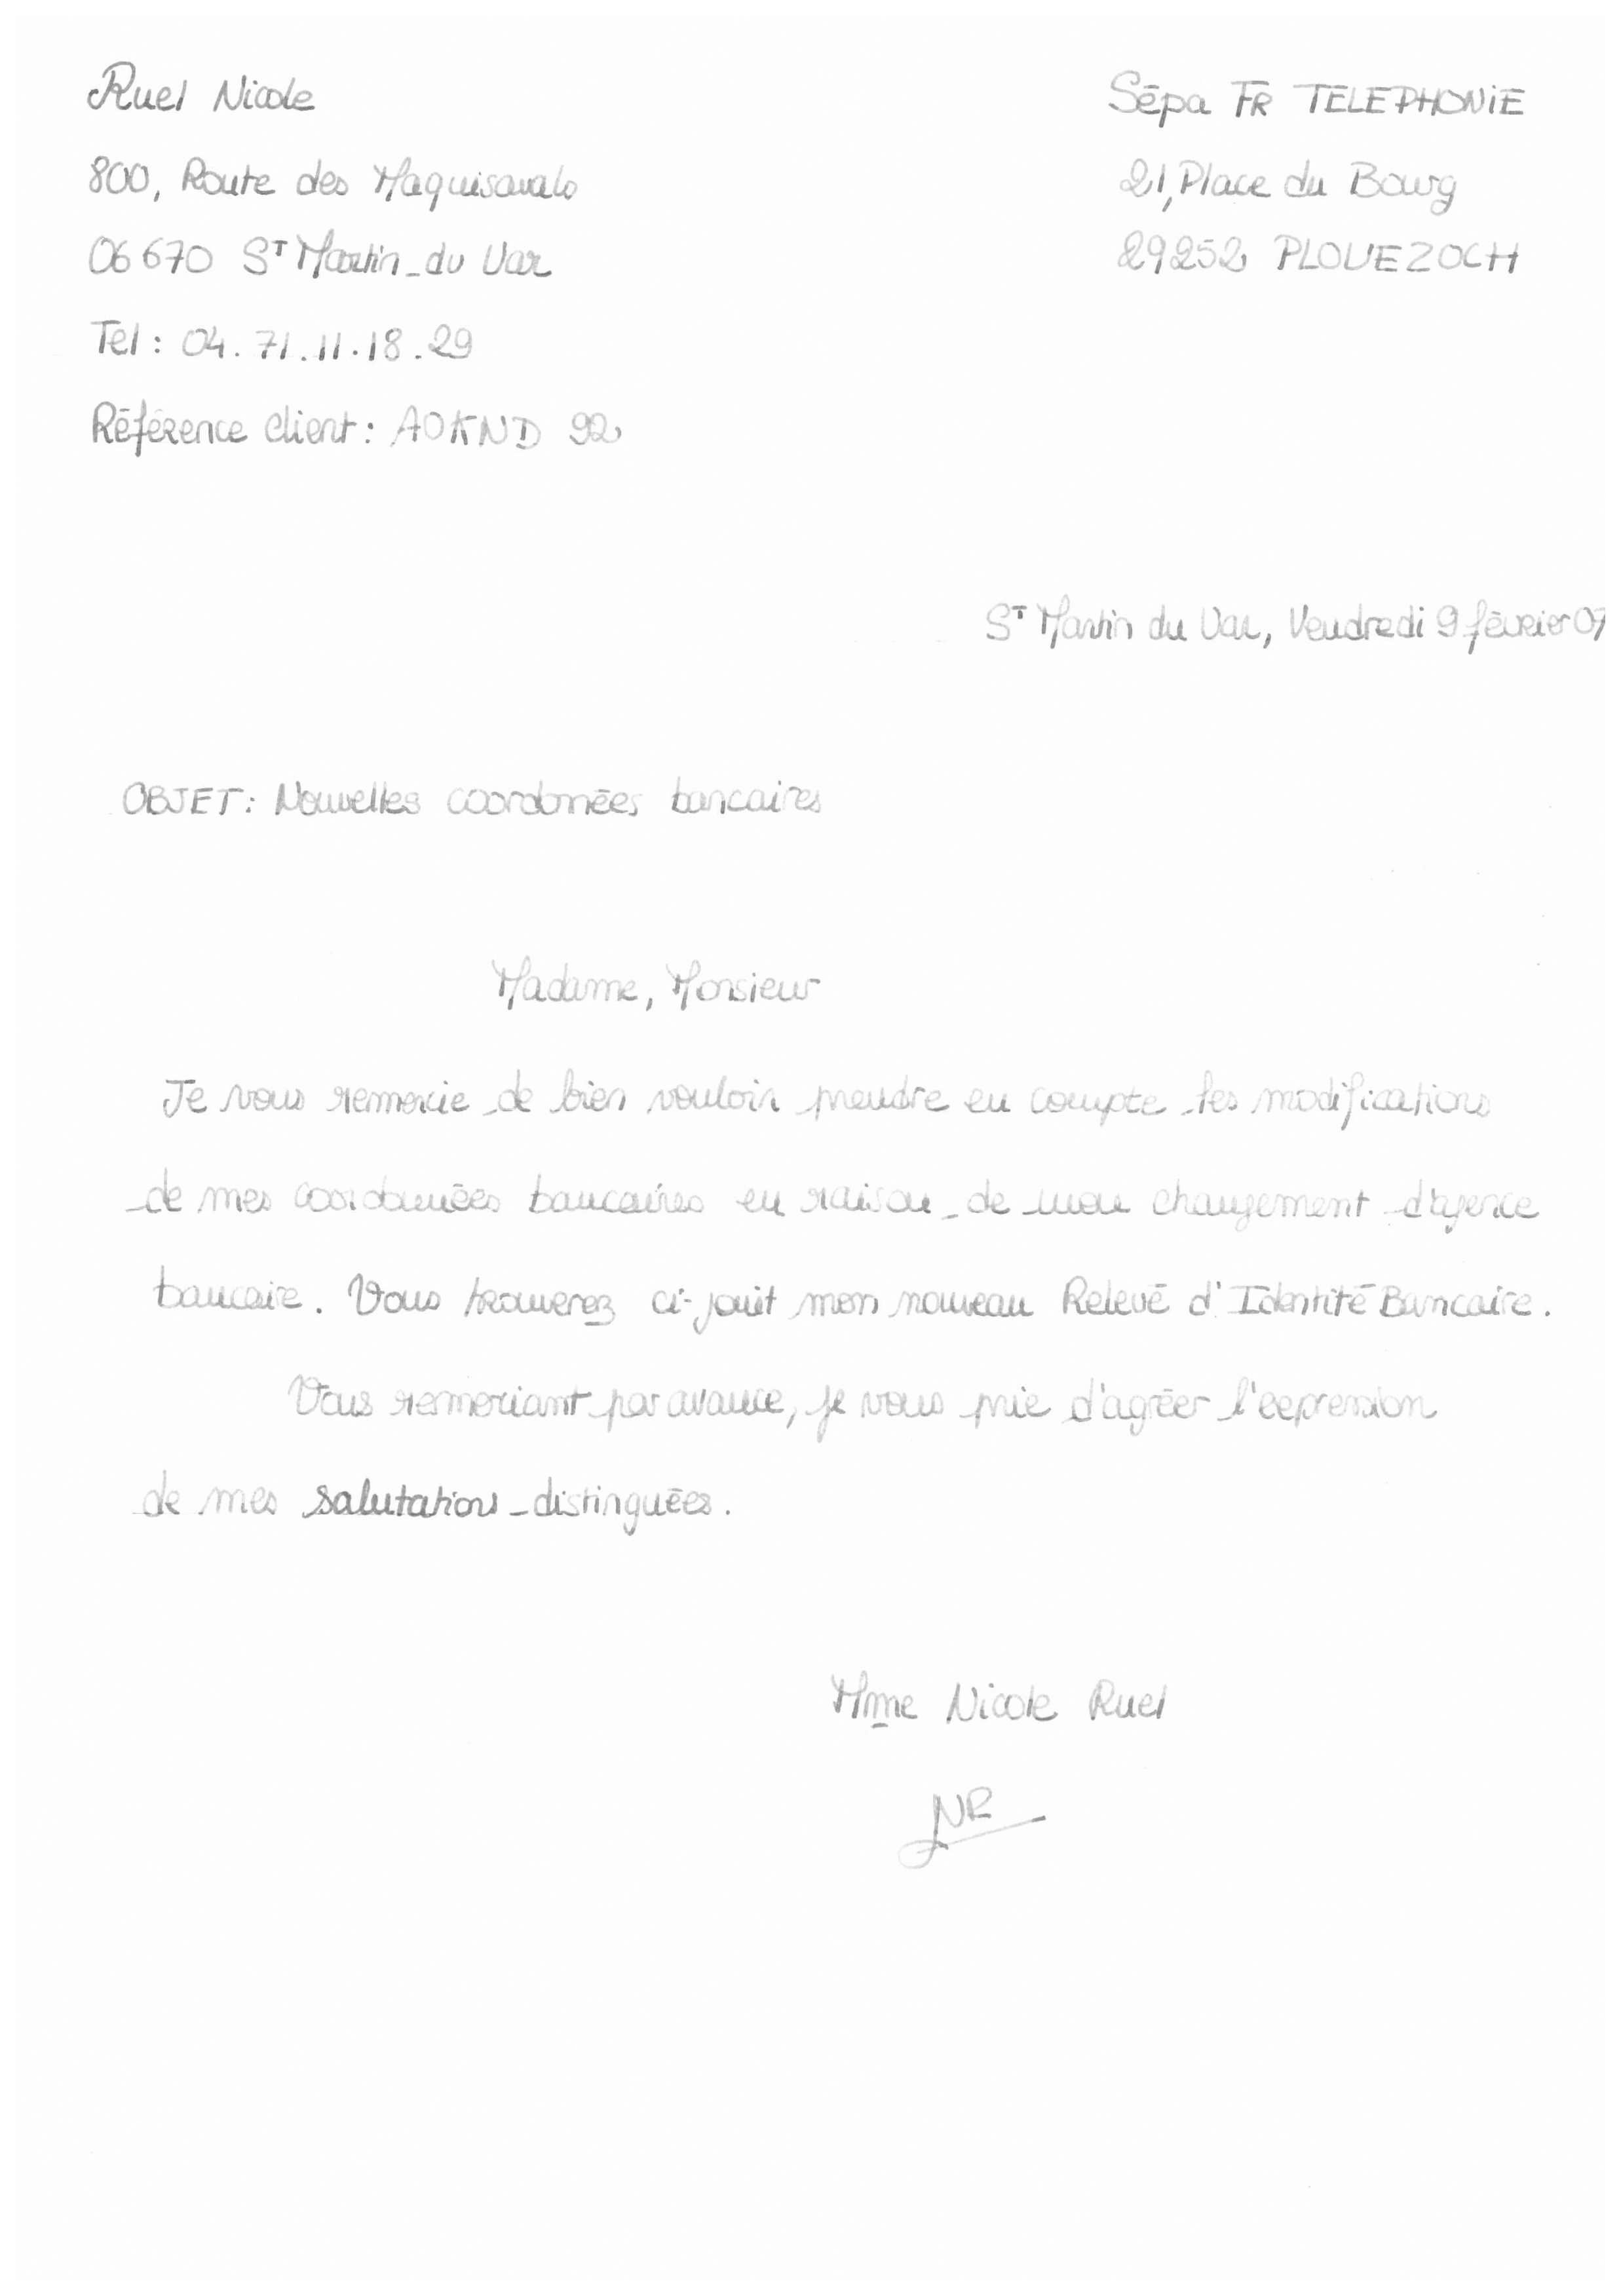 Ruel Nicole
800, Route des Maquisards
06670 St Martin-du Var
Tel : 04.71.11.18.29
Référence client : AOKND 92
Sépa FR TELEPHONIE
21, Place du Bourg
29252 PLOUEZOCH
St Martin du Var, Vendredi 9 février 07
OBJET : Nouvelles coordonnées bancaires
Madame, Monsieur
Je vous remercie de bien vouloir prendre en compte les modifications
de mes coordonnées bancaires en raison de mon changement d'agence
bancaire. Vous trouverez ci-joint mon nouveau Relevé d'Identité Bancaire.
Vous remerciant par avance, je vous prie d'agréer l'expression
de mes salutations distinguées.
Mme Nicole Ruel
NR